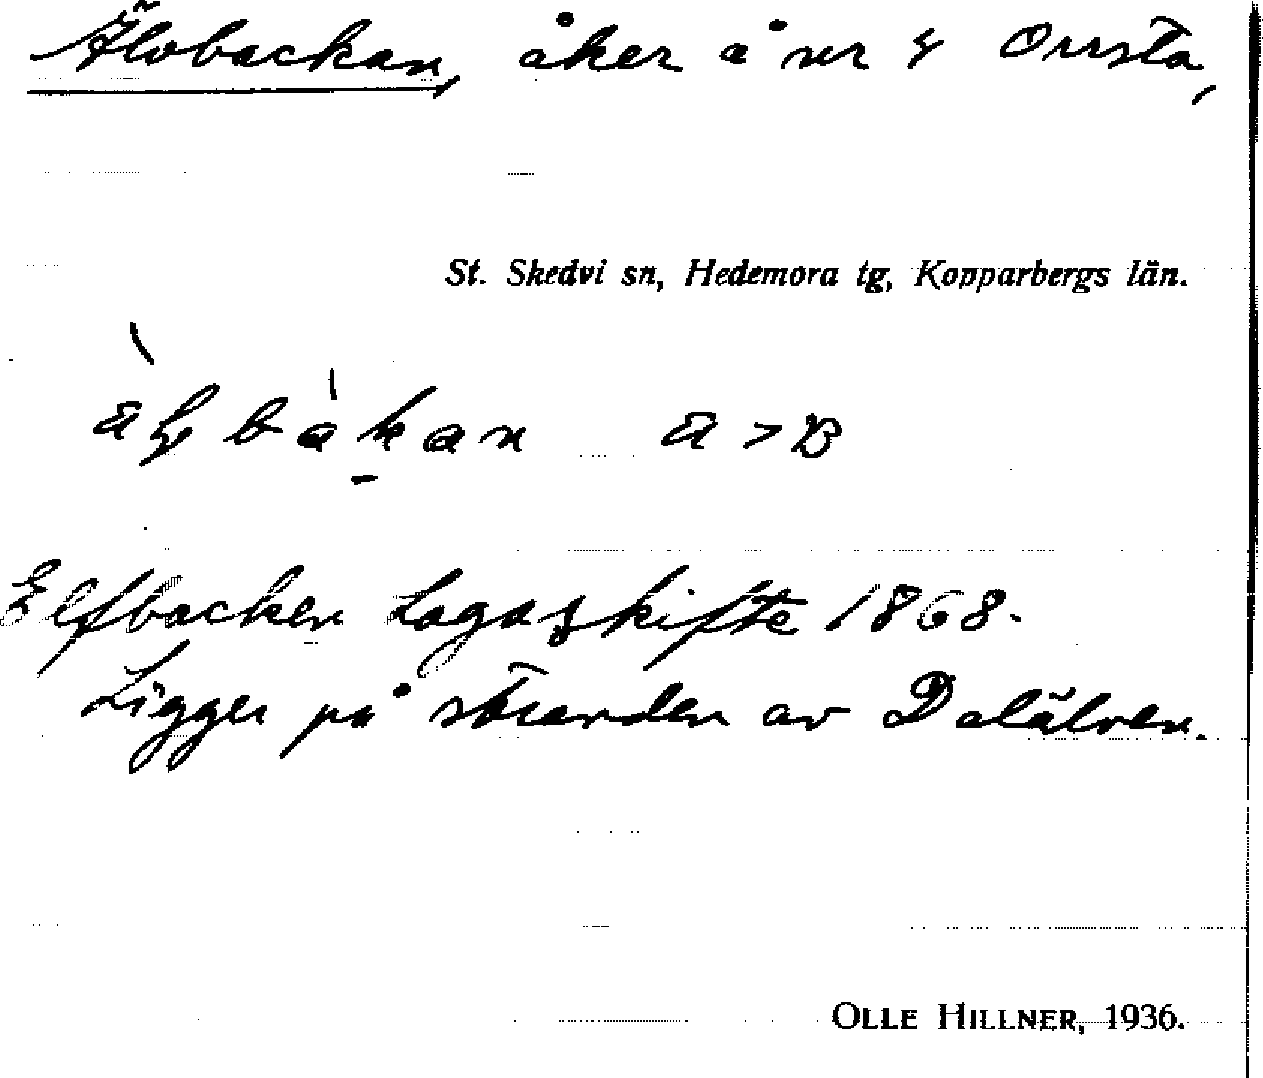 Älvbackan, åker å nr 4 Orrsta,
St. Skedvi sn, Hedemora tg, Kopparbergs län.
a > B
Elfbacken Lagaskifte 1868.
Ligger på stranden av Dalälven.
OLLE HILLNER, 1936.